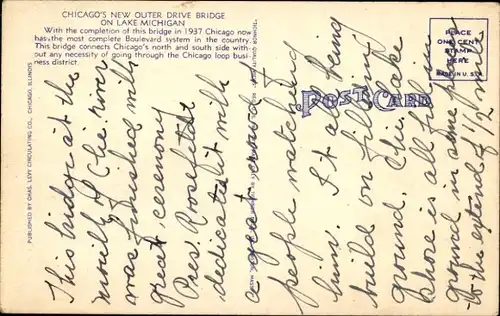 CHICAGO'S NEW OUTER DRIVE BRIDGE
ON LAKE MICHIGAN
With the completion of this bridge in 1937 Chicago now
has the most complete Boulevard system in the country.
This bridge connects Chicago's north and south side with-
out any necessity of going through the Chicago loop busi-
ness district.
PLACE
ONE CENT
STAMP
HERE
MADE IN U.S.A.
POST CARD
PUBLISHED BY CHAS. LEVY CIRCULATING CO., CHICAGO, ILLINOIS
This bridge at the
mouth of Chi river
was finished with
great ceremony
Pres Rosefeldt
dedicated it with
a great crowd of
people watching
him. It all being
build on filled in
ground. Chi. lake
shore is all filled in
ground in some places
to the extend of 1/2 mile